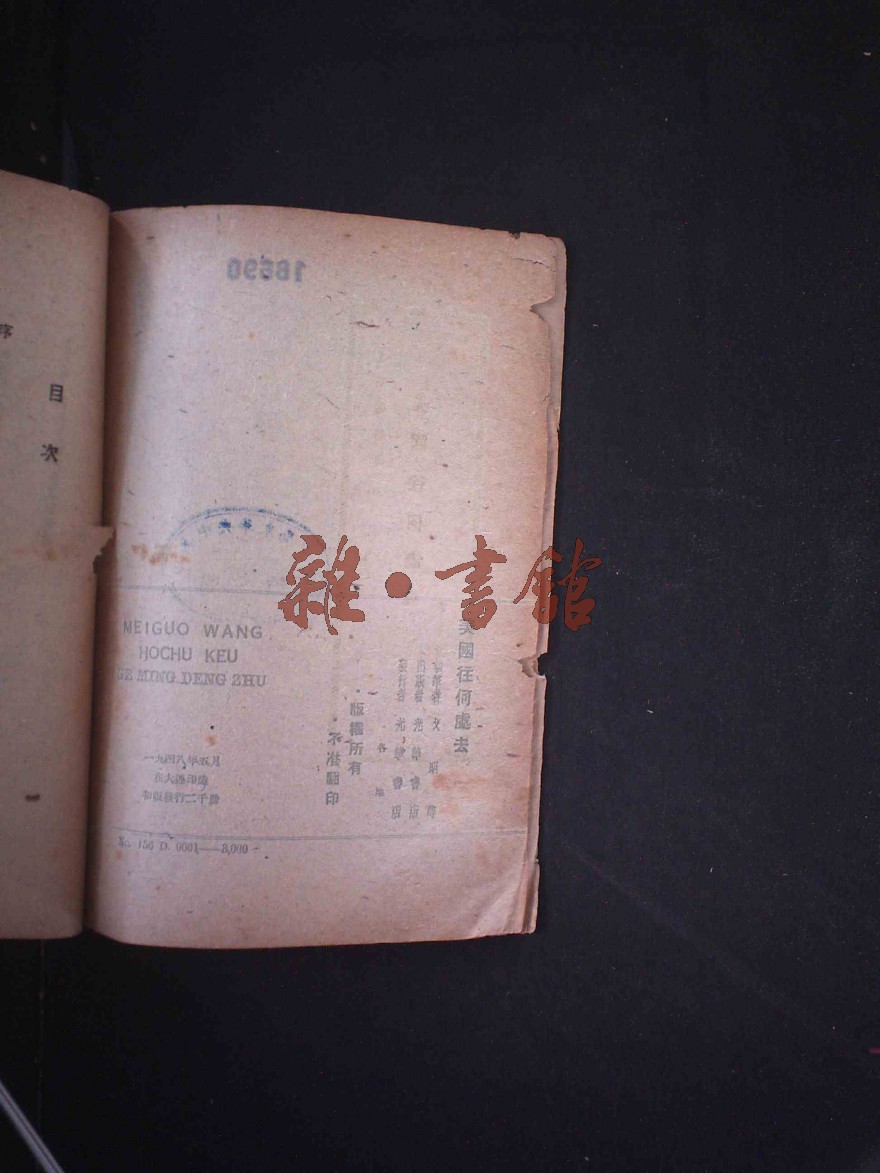 序
目次
18690
雜·書館
美國往何處去
出版者 光華書店
發行者 光華書店
各地
版權所有
不准翻印
MEIGUO WANG
HOCHU KEU
GE MING DENG ZHU
一九四八年五月
在大連印造
初版發行三千冊
No. 156 D. 0001——3,000